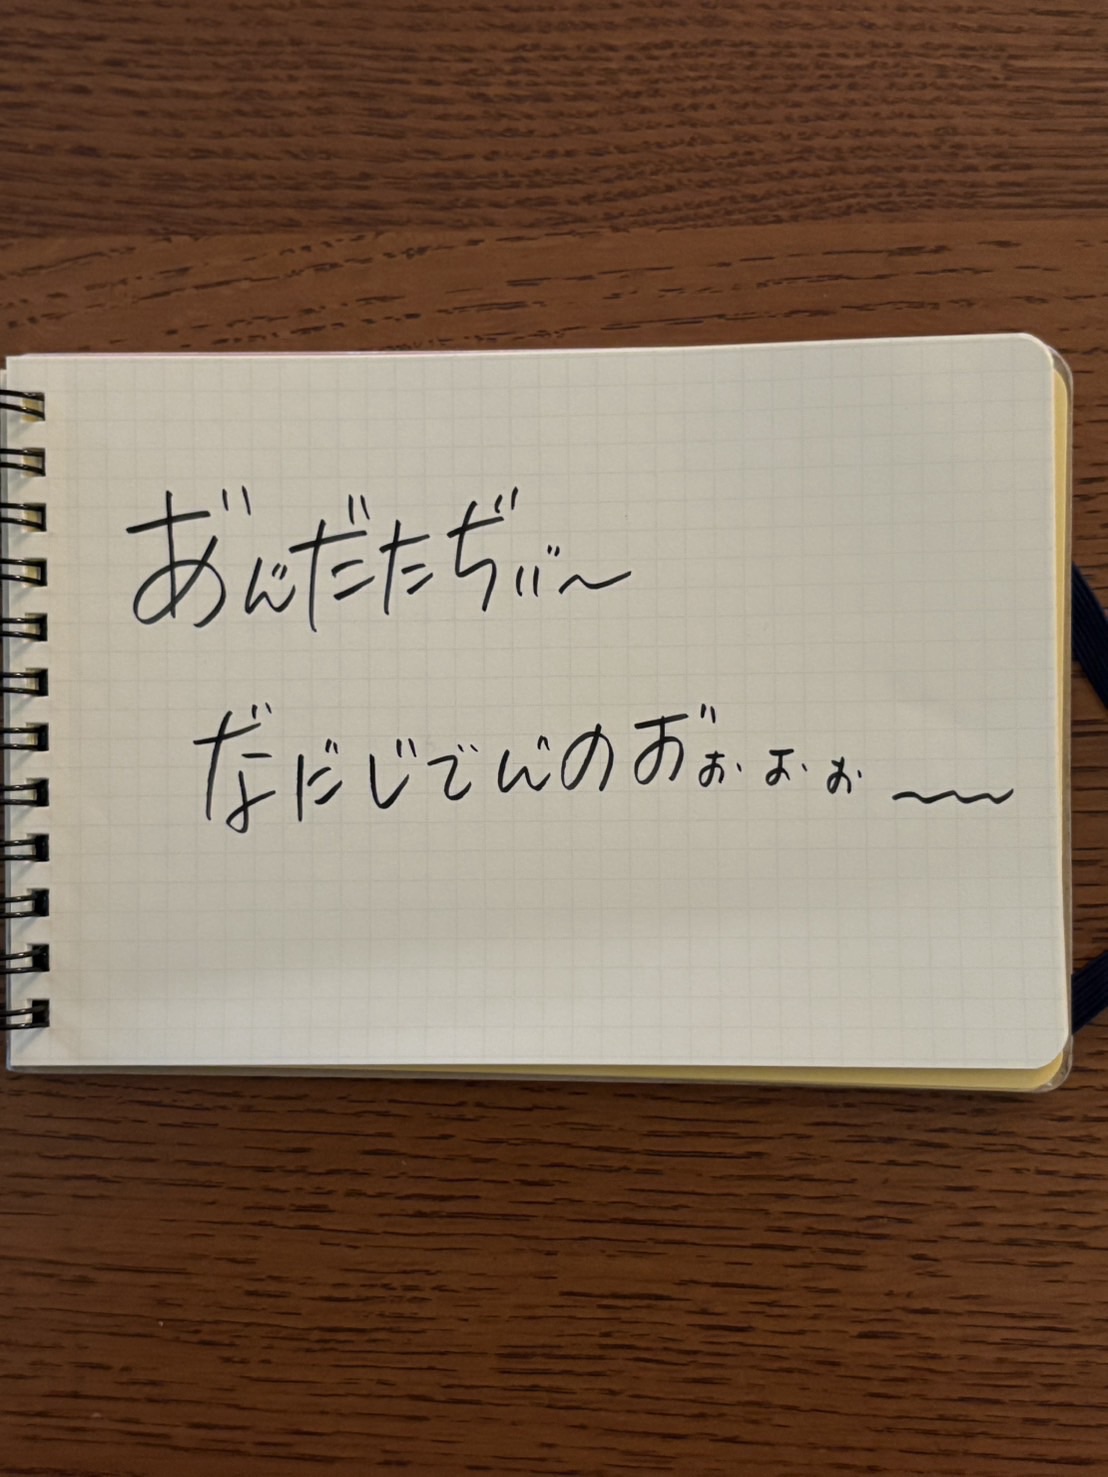 あ゛ん゛だたぢぃ゛〜
な゛に゛じでん゛のお゛ぉぉぉ〜〜